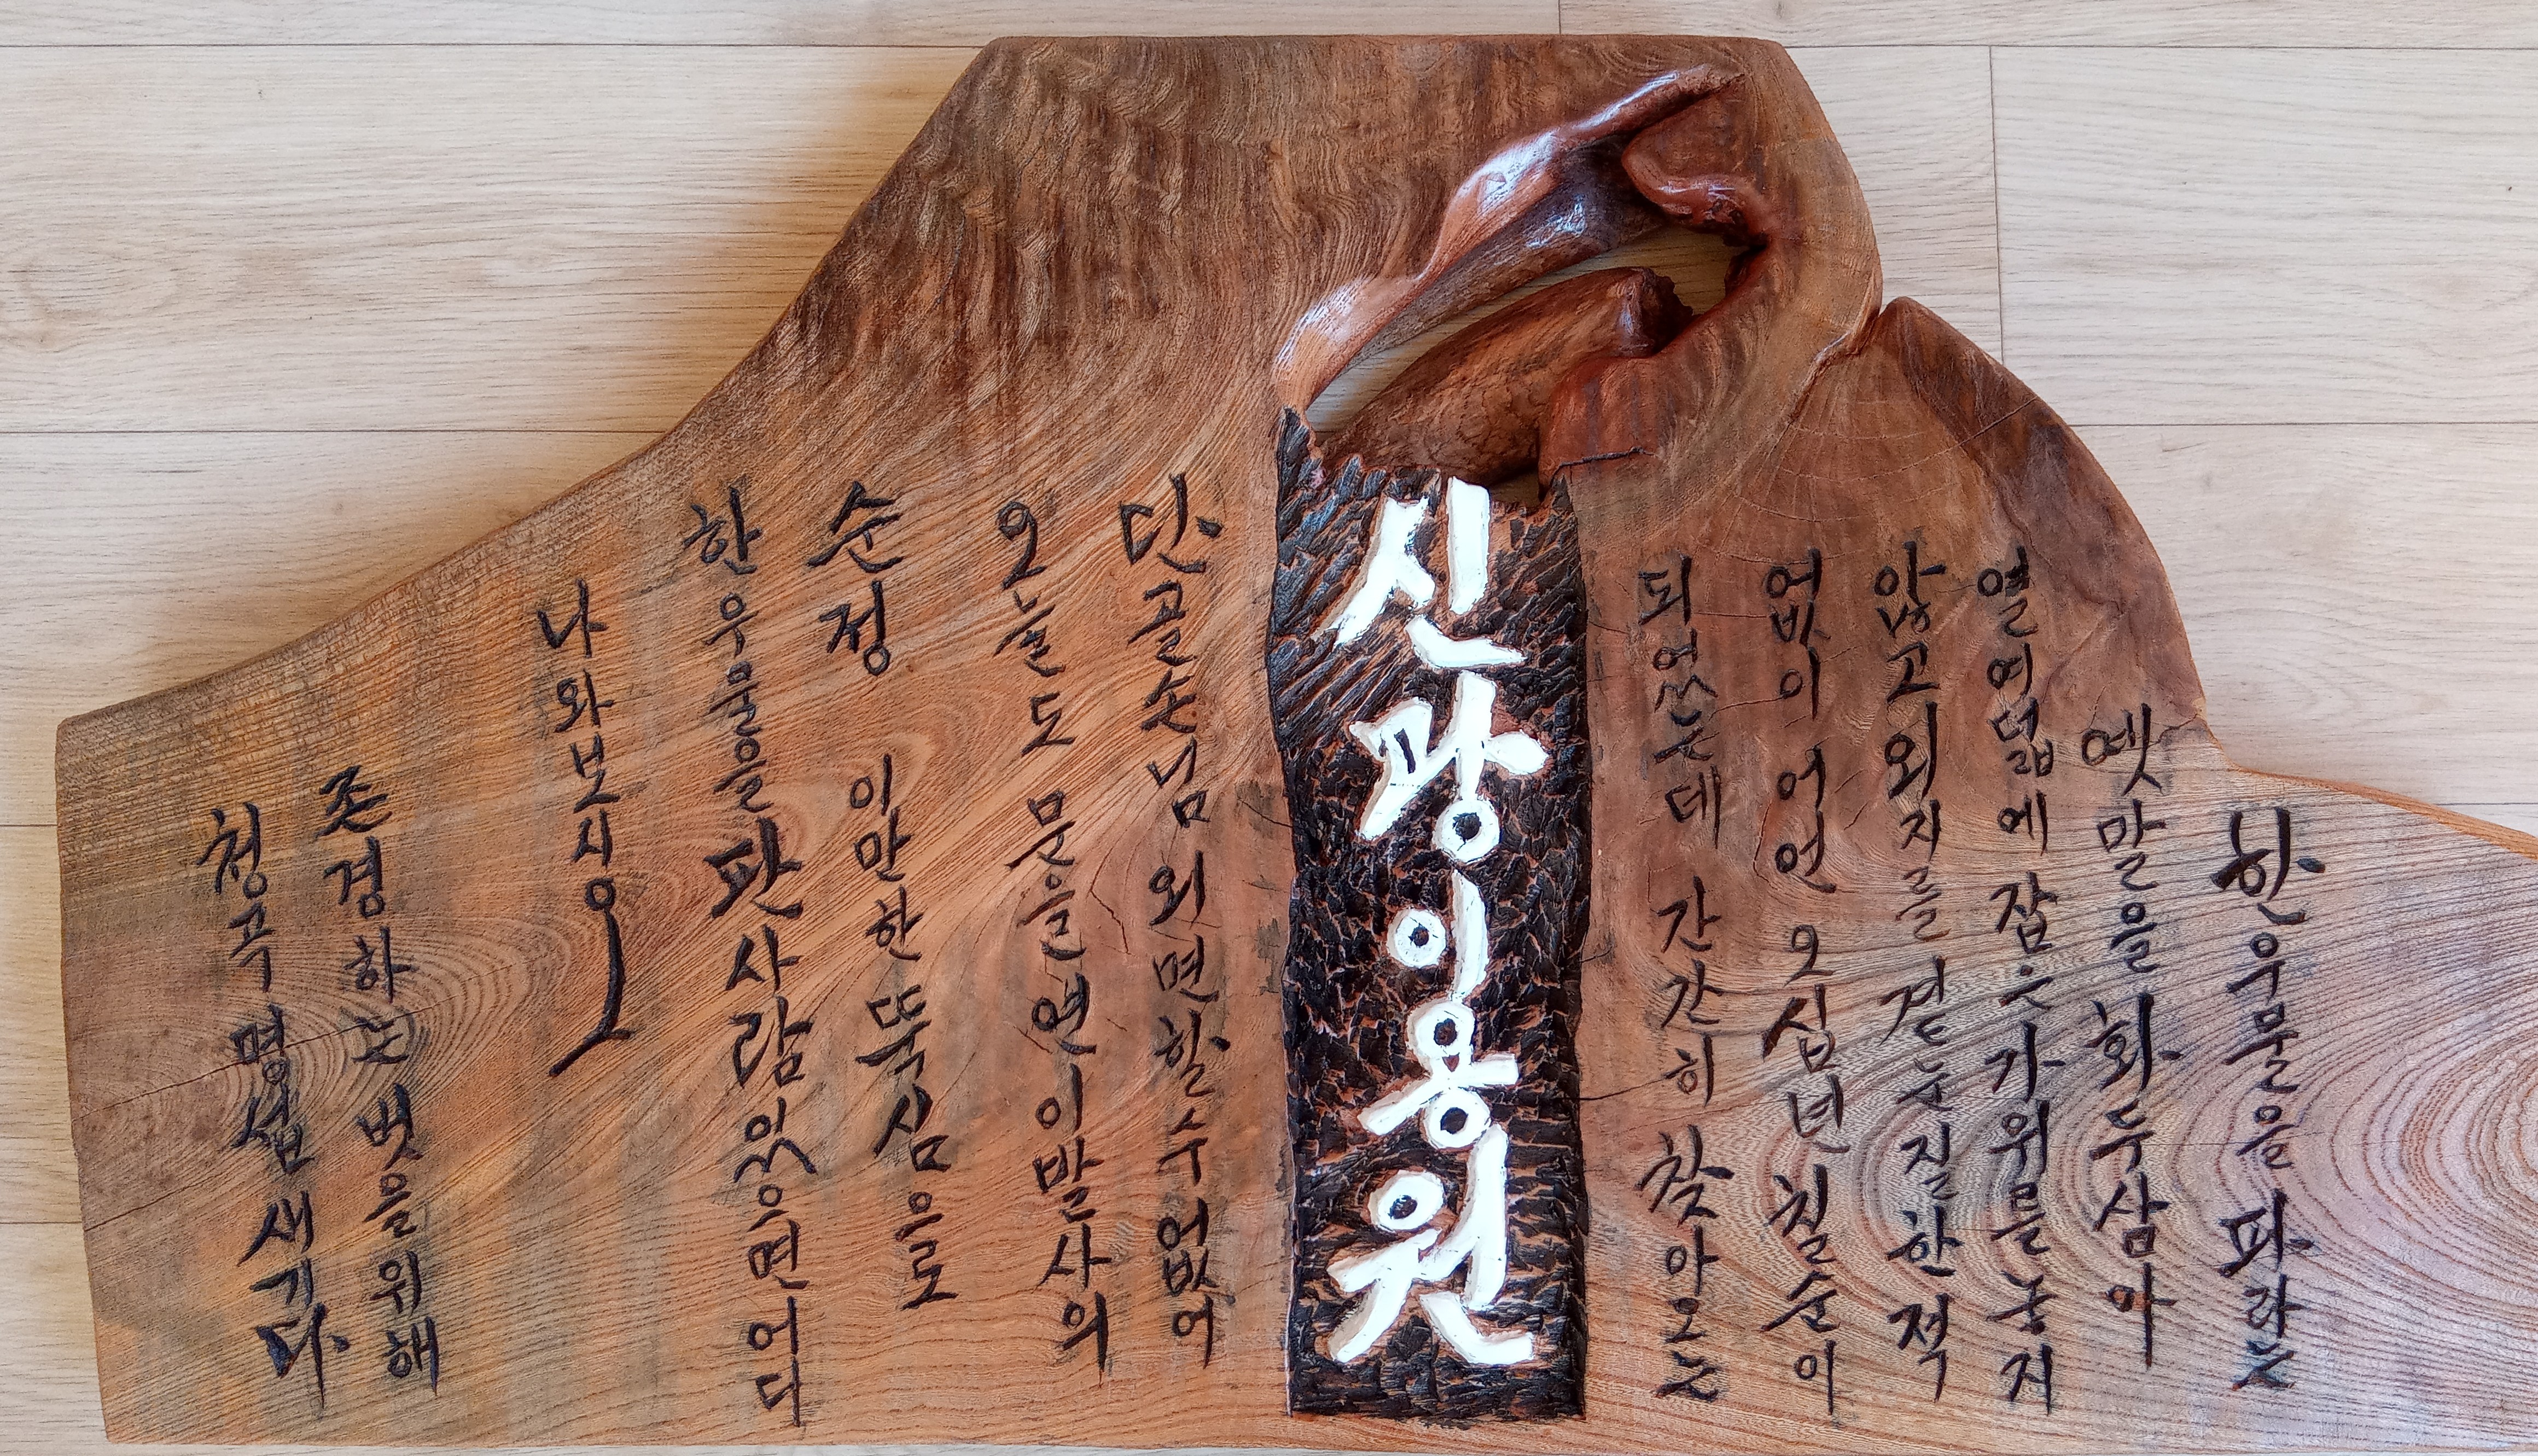 한우물을 파라는
옛말을 화두삼아
열여덟에 잡은가위를놓지
않고외지를 곁눈질한적
없이 어언 오십년 칠순이
되었는데 간간히 찾아오는
신광이용원
단골손님 외면할수 없어
오늘도 문을연 이발사의
순정 이만한 뚝심으로
한우물을 판사람 있으면 어디
나와보시오
존경하는 벗을위해
청곡 명섭 새기다